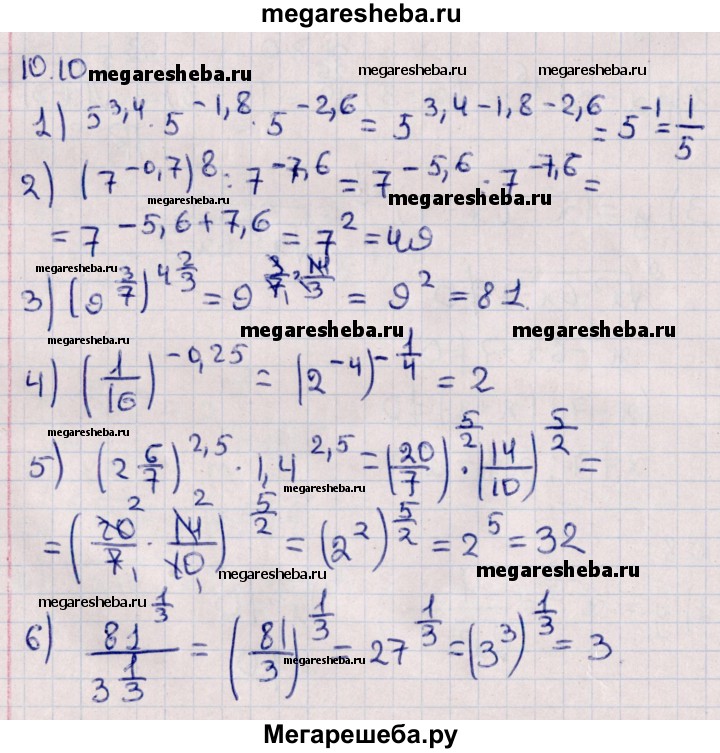 megaresheba.ru
10.10 megaresheba.ru megaresheba.ru megaresheba.ru
1) 5^{3,4} · 5^{-1,8} · 5^{-2,6} = 5^{3,4-1,8-2,6} = 5^{-1} = \frac{1}{5}
2) (7^{-0,7})^8 : 7^{-7,6} = 7^{-5,6} : 7^{-7,6} =
megaresheba.ru megaresheba.ru
= 7^{-5,6+7,6} = 7^2 = 49
megaresheba.ru
3) (9^{\frac{3}{7}})^{4\frac{2}{3}} = 9^{\frac{3}{7} · \frac{14}{3}} = 9^2 = 81.
megaresheba.ru megaresheba.ru megaresheba.ru
4) (\frac{1}{16})^{-0,25} = (2^{-4})^{-\frac{1}{4}} = 2
megaresheba.ru megaresheba.ru
5) (2\frac{6}{7})^{2,5} · 1,4^{2,5} = (\frac{20}{7})^{\frac{5}{2}} · (\frac{14}{10})^{\frac{5}{2}} =
megaresheba.ru
= (\frac{20}{7} · \frac{14}{10})^{\frac{5}{2}} = (2^2)^{\frac{5}{2}} = 2^5 = 32
megaresheba.ru megaresheba.ru
megaresheba.ru megaresheba.ru
6) \frac{81^{\frac{1}{3}}}{3^{\frac{1}{3}}} = (\frac{81}{3})^{\frac{1}{3}} = 27^{\frac{1}{3}} = (3^3)^{\frac{1}{3}} = 3
megaresheba.ru
Мегарешеба.ру